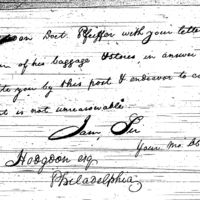 an Doct. Pfeiffer with your letter
of his baggage & stores in answer
te you by this post & endeavor to co
t is not unreasonable
I am Sir
Your Mo. Ob
Hodgdon esq
Philadelphia